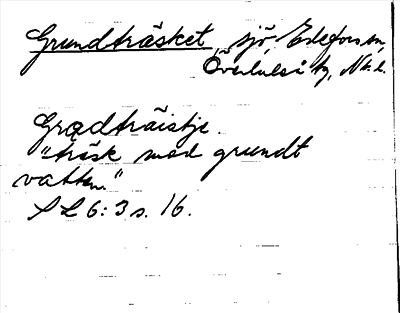 Grundträsket, sjö, Edefors sn,
Överluleå tg, Nb. l.
Grādträistje.
"träsk med grundt
vatten."
SL 6:3 s. 16.